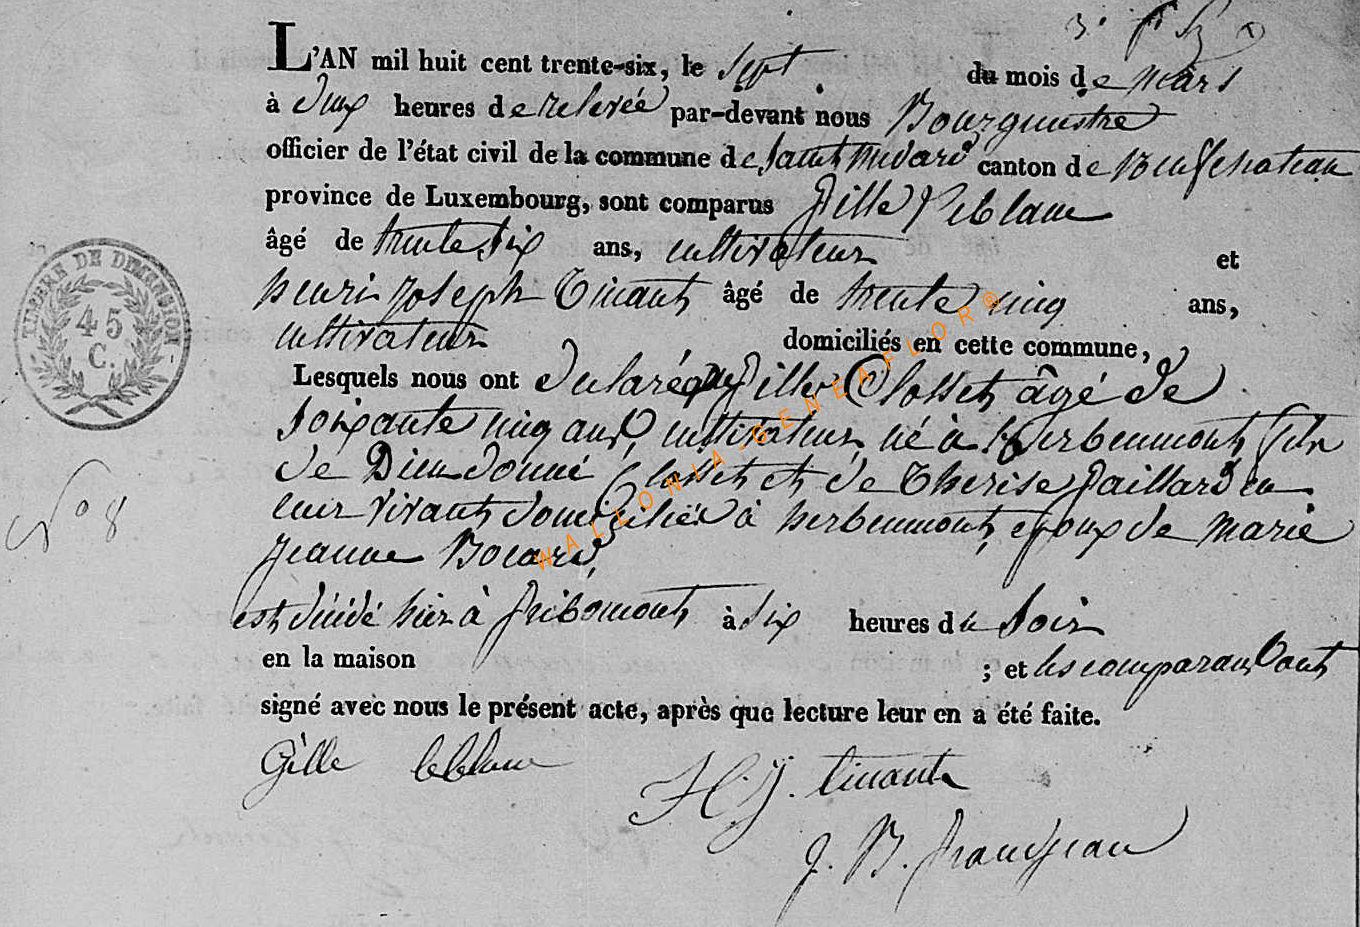 L'AN mil huit cent trente-six, le Sept du mois de mars
à deux heures de relevée par-devant nous Bourgmestre
officier de l'état civil de la commune de Saint Medard canton de Neufchateau
province de Luxembourg, sont comparus Gille Leblanc
âgé de trente six ans, cultivateur et
henri joseph Tinant âgé de trente cinq ans,
cultivateur domiciliés en cette commune,
Lesquels nous ont déclaré que Gille Closset âgé de
soixante cinq ans, cultivateur né à herbeumont, fils
de Dieudonné Closset et de Therise Gaillard en
leur vivant domicilié à herbeumont, epoux de Marie
jeanne Bocard,
est décédé hier à Gribomont à six heures du soir
en la maison ; et les comparans ont
signé avec nous le présent acte, après que lecture leur en a été faite.
Gille leblanc H. J. tinant
J. B. grandjean
TIMBRE DE DIMENSION
45
C.
N° 8
WALLONIA-GENEAFLOR®